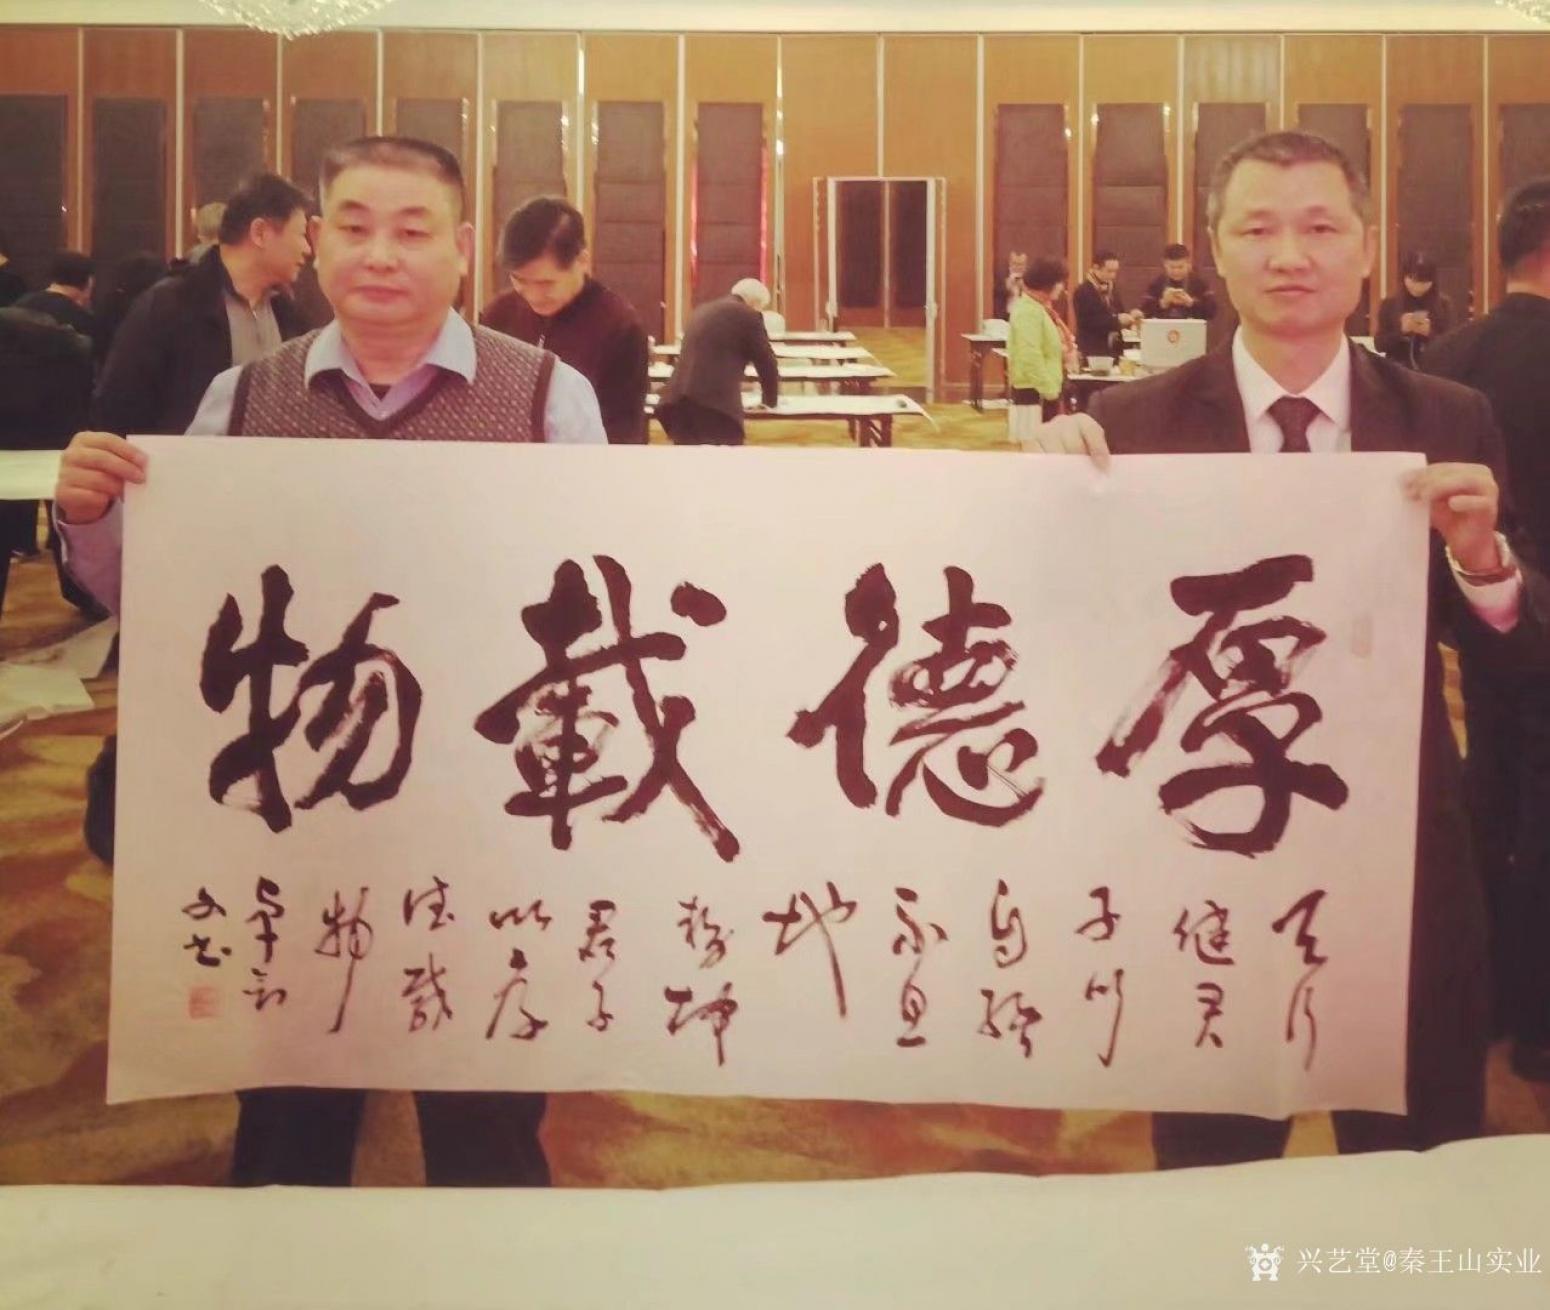 厚德載物
天行
健君
子以
自強
不息
地
勢坤
君子
以厚
德載
物
文书
兴艺堂@秦王山实业